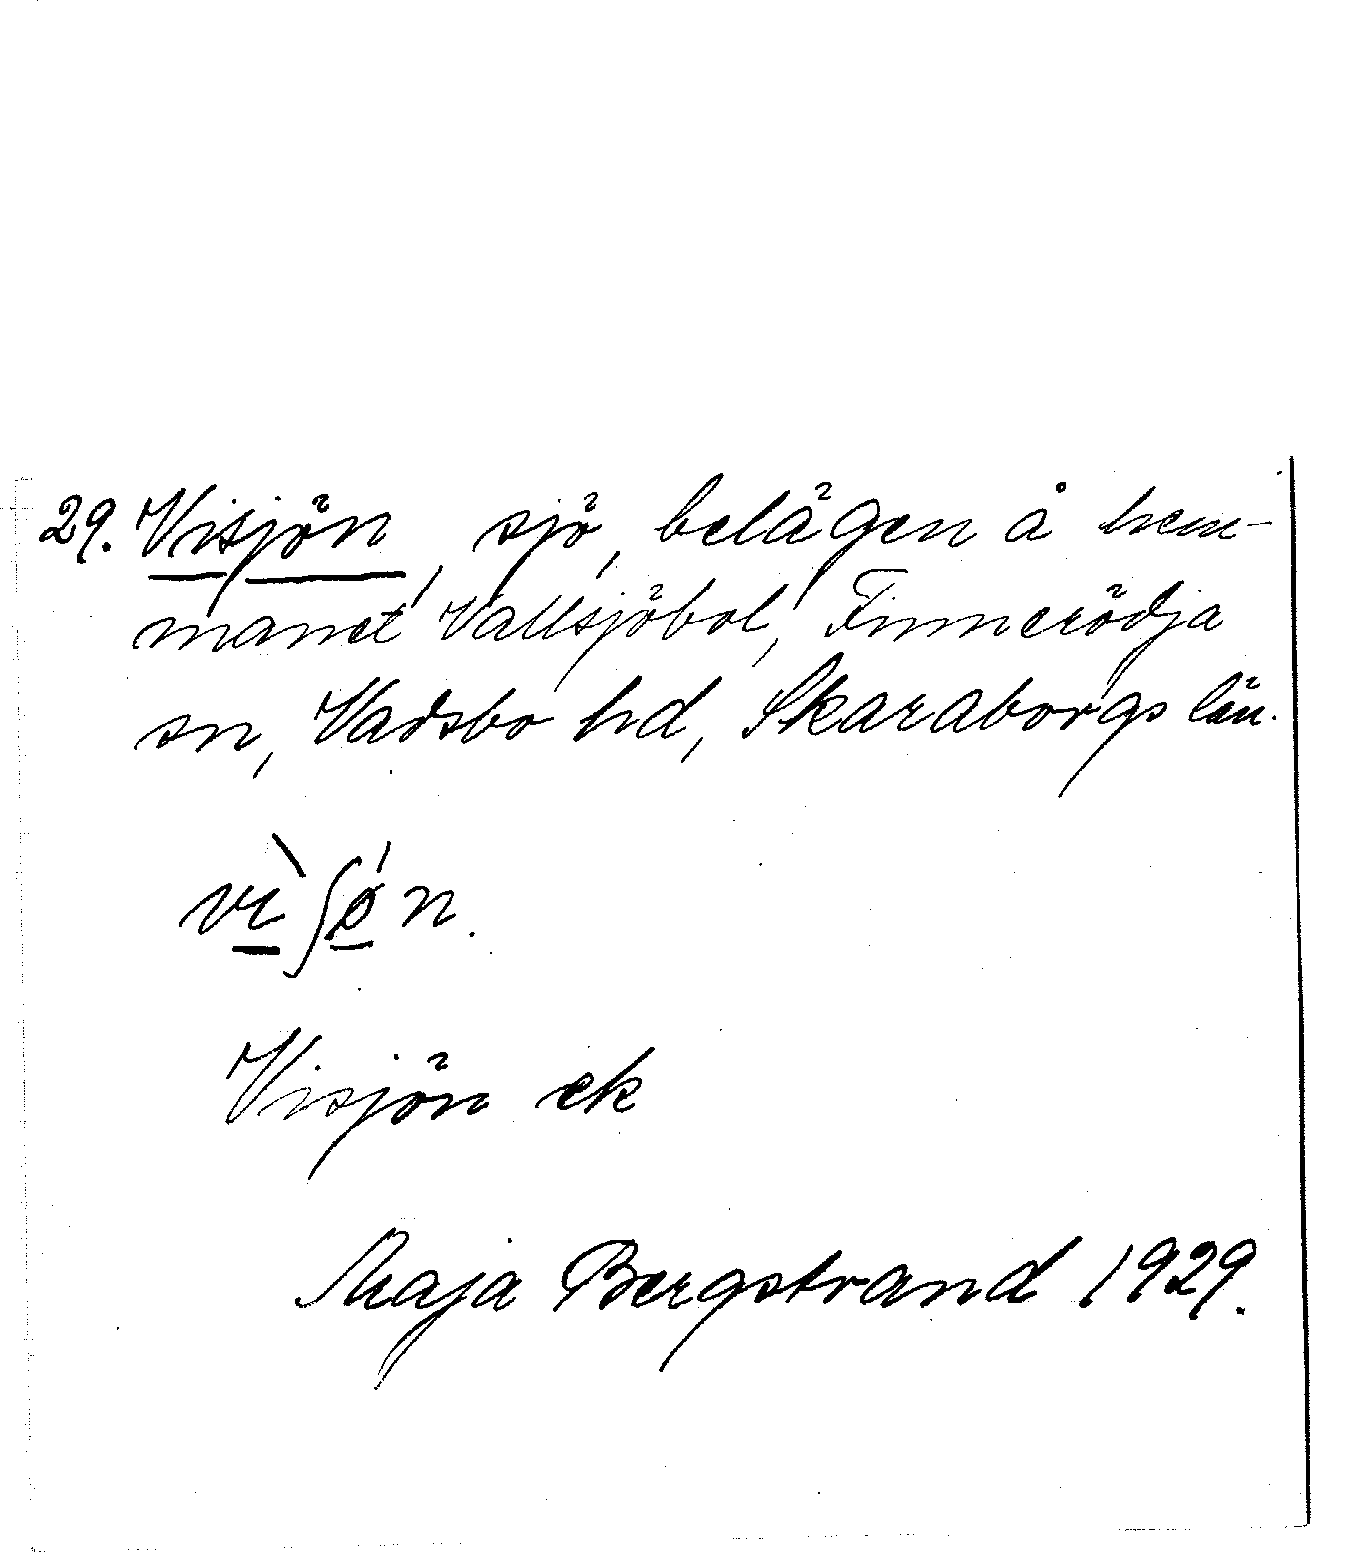 29. Visjön, sjö, belägen å hem-
manet Vallsjöbol, Finnerödja
sn, Vadsbo hd, Skaraborgs län.
vìʃǿn.
Visjön ek
Maja Bergstrand 1929.